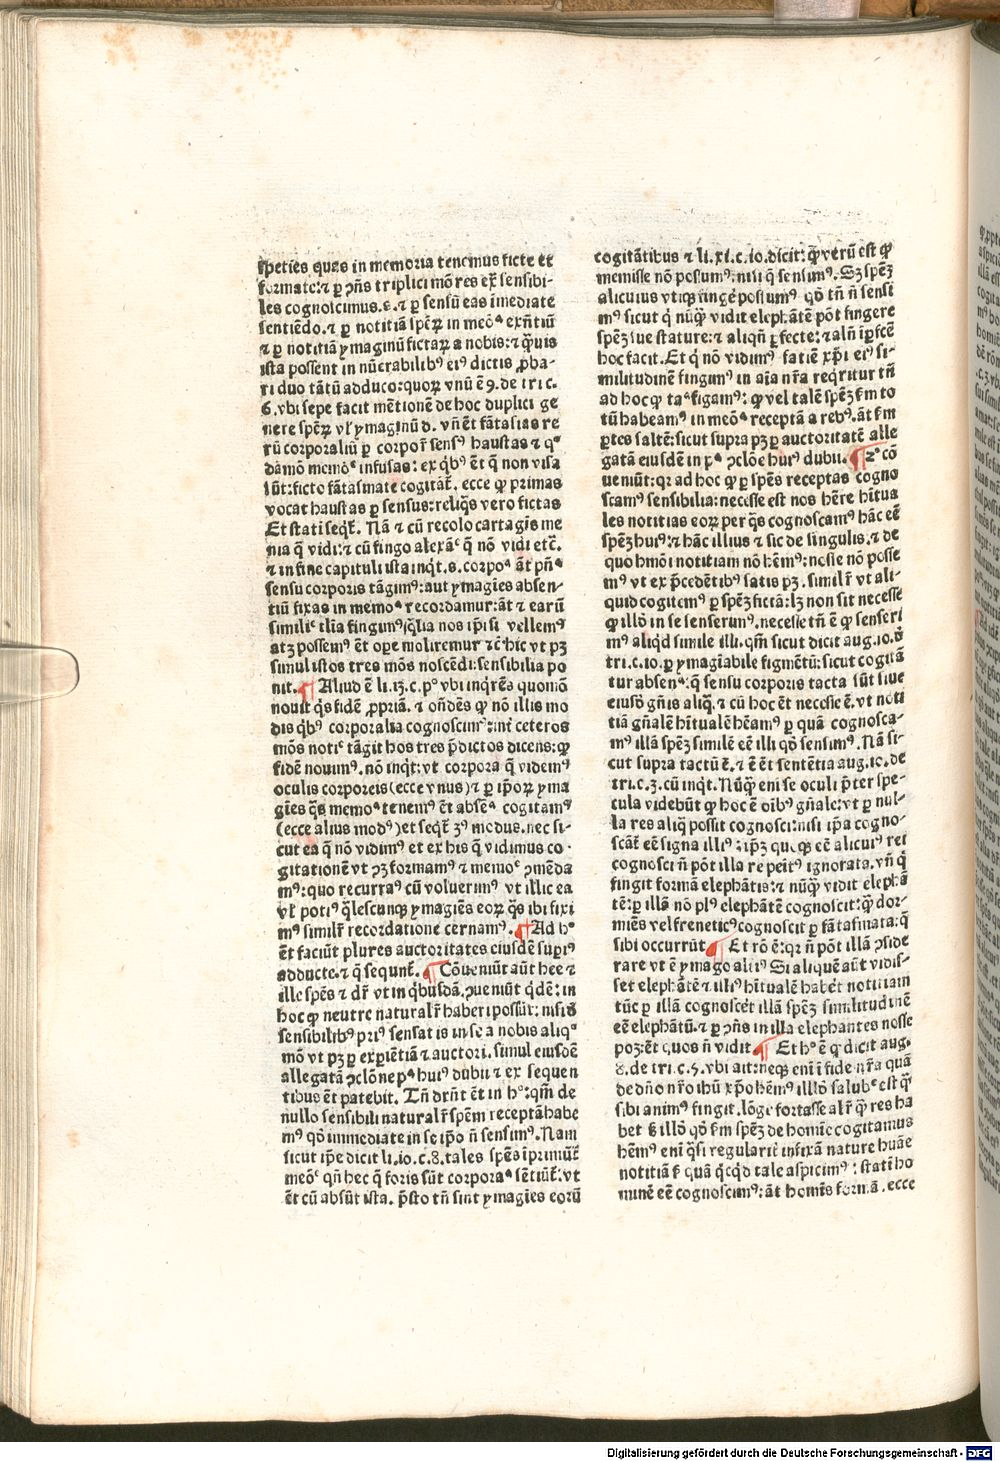 species quas in memoria tenemus ficte et
formate: ⁊ ꝑ ↄñs triplici mō res ex̄ sensibi-
les cognoscimus. s. ⁊ ꝑ sensū eas īmediate
sentiēdo. ⁊ ꝑ notitiā spēꝝ in meōᵃ exn̄tiū
⁊ ꝑ notitiā ymaginū fictaꝝ a nobis: ⁊ q̄uis
ista possent in nūerabilibꝰ eiꝰ dictis ꝓba-
ri duo tātū adduco: quoꝝ vnū ē 9. de tri c.
6. vbi sepe facit mētionē de hoc duplici ge
nere spēꝝ vel ymaginū d. vn̄ ēt fātasias re
rū corporaliū ꝑ corporꝭ sensꝰ haustas ⁊ qᵒ
dāmō memōᵉ infusas: ex qͥbꝰ ēt q̄ non visa
sūt: ficto fātasmate cogitāt̄. ecce ꝙ primas
vocat haustas ꝑ sensus: reliqͣs vero fictas
Et stati seqt̄. Nā ⁊ cū recolo cartagīs me
nia q̄ vidi: ⁊ cū fingo alexāᵉ q̄ nō vidi etc̄.
⁊ in fine capituli ista inqͥt. s. corpoᵃ āt pn̄ᵃ
sensu corporis tāgimꝰ: aut ymagīes absen-
tiū fixas in memoᵃ recordamur: āt ⁊ earū
similiᵉ tl̄ia fingimꝰ qͣlia nos ip̄i si vellemꝰ
atqꝫ possemꝰ ēt ope moliremur ⁊c̄ hic vt pꝫ
simul istos tres mōs noscēdi: sensibilia po
nit. ¶ Aliud ē li. 13. c. pᵒ vbi inqͥrēs quomō
nouit qͥs fidē ꝓpriā. ⁊ on̄dēs ꝙ nō illis mo
dis qͥbꝰ corporalia cognoscimꝰ: int̄ ceteros
mōs notiᵉ tāgit hos tres p̄dictos dicens: ꝙ
fidē nouimꝰ. nō inqͥt: vt corpora q̄ videmꝰ
oculis corporeis (ecce vnus) ⁊ ꝑ ip̄oꝝ yma
gīes qͣs memoᵃ tenemꝰ ēt absēᵃ cogitamꝰ
(ecce alius modꝰ) et seqt̄ 3ꝰ modus. nec si-
cut ea q̄ nō vidimꝰ et ex his q̄ vidimus co-
gitationē vt ↄꝫ formamꝰ ⁊ memoᵉ ↄmēda
mꝰ: quo recurraꝰ cū voluerimꝰ vt illic ea
vel potiꝰ qͣlescunqꝫ ymagīes eoꝝ qͣs ibi fixi
mꝰ simil̄r recordatione cernamꝰ. ¶ Ad hᵒ
ēt faciūt plures auctoritates eiusdē supiꝰ
adducte. ⁊ q̄ sequnt̄. ¶ Cōueniūt aūt hee ⁊
ille spēs ⁊ dr̄ vt in qͥbusdā. ↄueniūt qͥdē: in
hoc ꝙ neutre natural̄r haberi possūt: nisi ꝺ
sensibilibꝰ priꝰ sensatis in se a nobis aliqᵃ
mō vt pꝫ ꝑ expiētiā ⁊ auctori. simul eiusdē
allegatā ↄclōne pᵃ huiꝰ dubii ⁊ ex sequen
tibus ēt patebit. Tn̄ drn̄t ēt in hᵒ: qm̄ de
nullo sensibili natural̄r spēm receptā habe
mꝰ qō immediate in se ip̄o n̄ sensimꝰ. Nam
sicut ip̄e dicit li. 10. c. 8. tales spēs īprimūt̄
meōᵉ qn̄ hec q̄ foris sūt corporaᵃ sētiūt̄. vt
ēt cū absūt ista. p̄sto tn̄ sint ymagīes eorū
cogitātibus ⁊ li. xi. c. 10. dicit: ꝙ verū est ꝙ
memisse nō possumꝰ: nisi q̄ sensimꝰ. Sꝫ spēꝫ
alicuius vtiqꝫ fingē possumꝰ qō tn̄ n̄ sensi
mꝰ sicut qͥ nūqͣ vidit elephātē pōt fingere
spēꝫ sue stature: ⁊ aliqn̄ ꝑfecte: ⁊ aln̄ īꝑfcē
hoc facit. Et qͥ nō vidimꝰ faciē xp̄i eiꝰ si-
militudinē fingimꝰ in aīa nr̄a reqͥritur tn̄
ad hoc ꝙ taᵃ figamꝰ: ꝙ vel talē spēꝫ ẜm to
tū habeamꝰ in meōᵃ receptā a rebꝰ. āt ẜm
ꝑtes saltē: sicut supra pꝫ ꝑ auctoritatē alle
gatā eiusdē in pᵃ ↄclōe huiꝰ dubii. ¶ 2ᵒ cō
ueniūt: qꝛ ad hoc ꝙ ꝑ spēs receptas cogno
scamꝰ sensibilia: necesse est nos hēre hītua
les notitias eoꝝ per qͣs cognoscamꝰ hāc eē
spēꝫ huiꝰ: ⁊ hāc illius ⁊ sic de singulis. ⁊ de
quo hmōi notitiam nō hēmꝰ: nosse nō posse
mꝰ vt ex p̄cedētibꝰ satis pꝫ. simil̄r vt ali-
quid cogitemꝰ ꝑ spēꝫ fictā: lꝫ non sit necesse
ꝙ illō in se senserimꝰ. necesse tn̄ ē ꝙ senseri
mꝰ aliqͥd simile illi. qm̄ sicut dicit aug. 10. ꝺ
tri. c. 10. ꝑ ymagīabile figmētū: sicut cogitā
tur absenᵃ: q̄ sensu corporis tacta sūt siue
eiusō gn̄is aliqͣ. ⁊ cū hoc ēt necesse ē. vt noti
tiā gn̄alē hītualē hēamꝰ ꝑ quā cognosca-
mꝰ illā spēꝫ similē eē illi qō sensimꝰ. Nā si-
cut supra tactū ē. ⁊ ē ēt sentētia aug. 10. de
tri. c. 3. cū inqͥt. Nūqͣ enī se oculi p̄ter spe-
cula videbūt ꝙ hoc ē oībꝰ gn̄ale: vt ꝑ nul-
la res aliqͣ possit cognosci: nisi ip̄a cogno-
scāt̄ eē signa illiꝰ: ip̄ꝫ queqꝫ eē alicuiꝰ rei
cognosci n̄ pōt illa repeitꝰ ignorata. vn̄ qͥ
fingit formā elephātis: ⁊ nūqͣ vidit elephā
tē: ꝑ illā nō plꝰ elephātē cognoscit: qͣ dor-
miēs vel freneticꝰ cognoscit ꝑ fātasmata: q̄
sibi occurrūt. ¶ Et rō ē: qꝛ n̄ pōt illā ↄside
rare vt ē ymago aliꝰ Si aliquē aūt vidis-
set elephātē ⁊ illiꝰ hītualē habēt notitiam
tūc ꝑ illā cognoscēt illā spēꝫ similitudinē
eē elephātū. ⁊ ꝑ ↄñs in illa elephantes nosse
poꝫ: ēt quos n̄ vidit. ¶ Et hᵒ ē qͦ dicit aug.
8. de tri. c. 5. vbi ait: neqꝫ enī ī fide nr̄a quā
de dn̄o nr̄o ihū xp̄o hēmꝰ illō salubᵉ est qͣ
sibi animꝰ fingit. lōge fortasse al̄r qͣ res ha
bet ꝫ illō qō ẜm spēꝫ de homīe cogitamus
hēmꝰ enī qͣsi regulariᵉ īfixā nature huāe
notitiā ẜ quā qͥcqͥd tale aspicimꝰ: statī ho
minē eē cognoscimꝰ: āt homīs formā. ecce
Digitalisierung gefördert durch die Deutsche Forschungsgemeinschaft - DFG